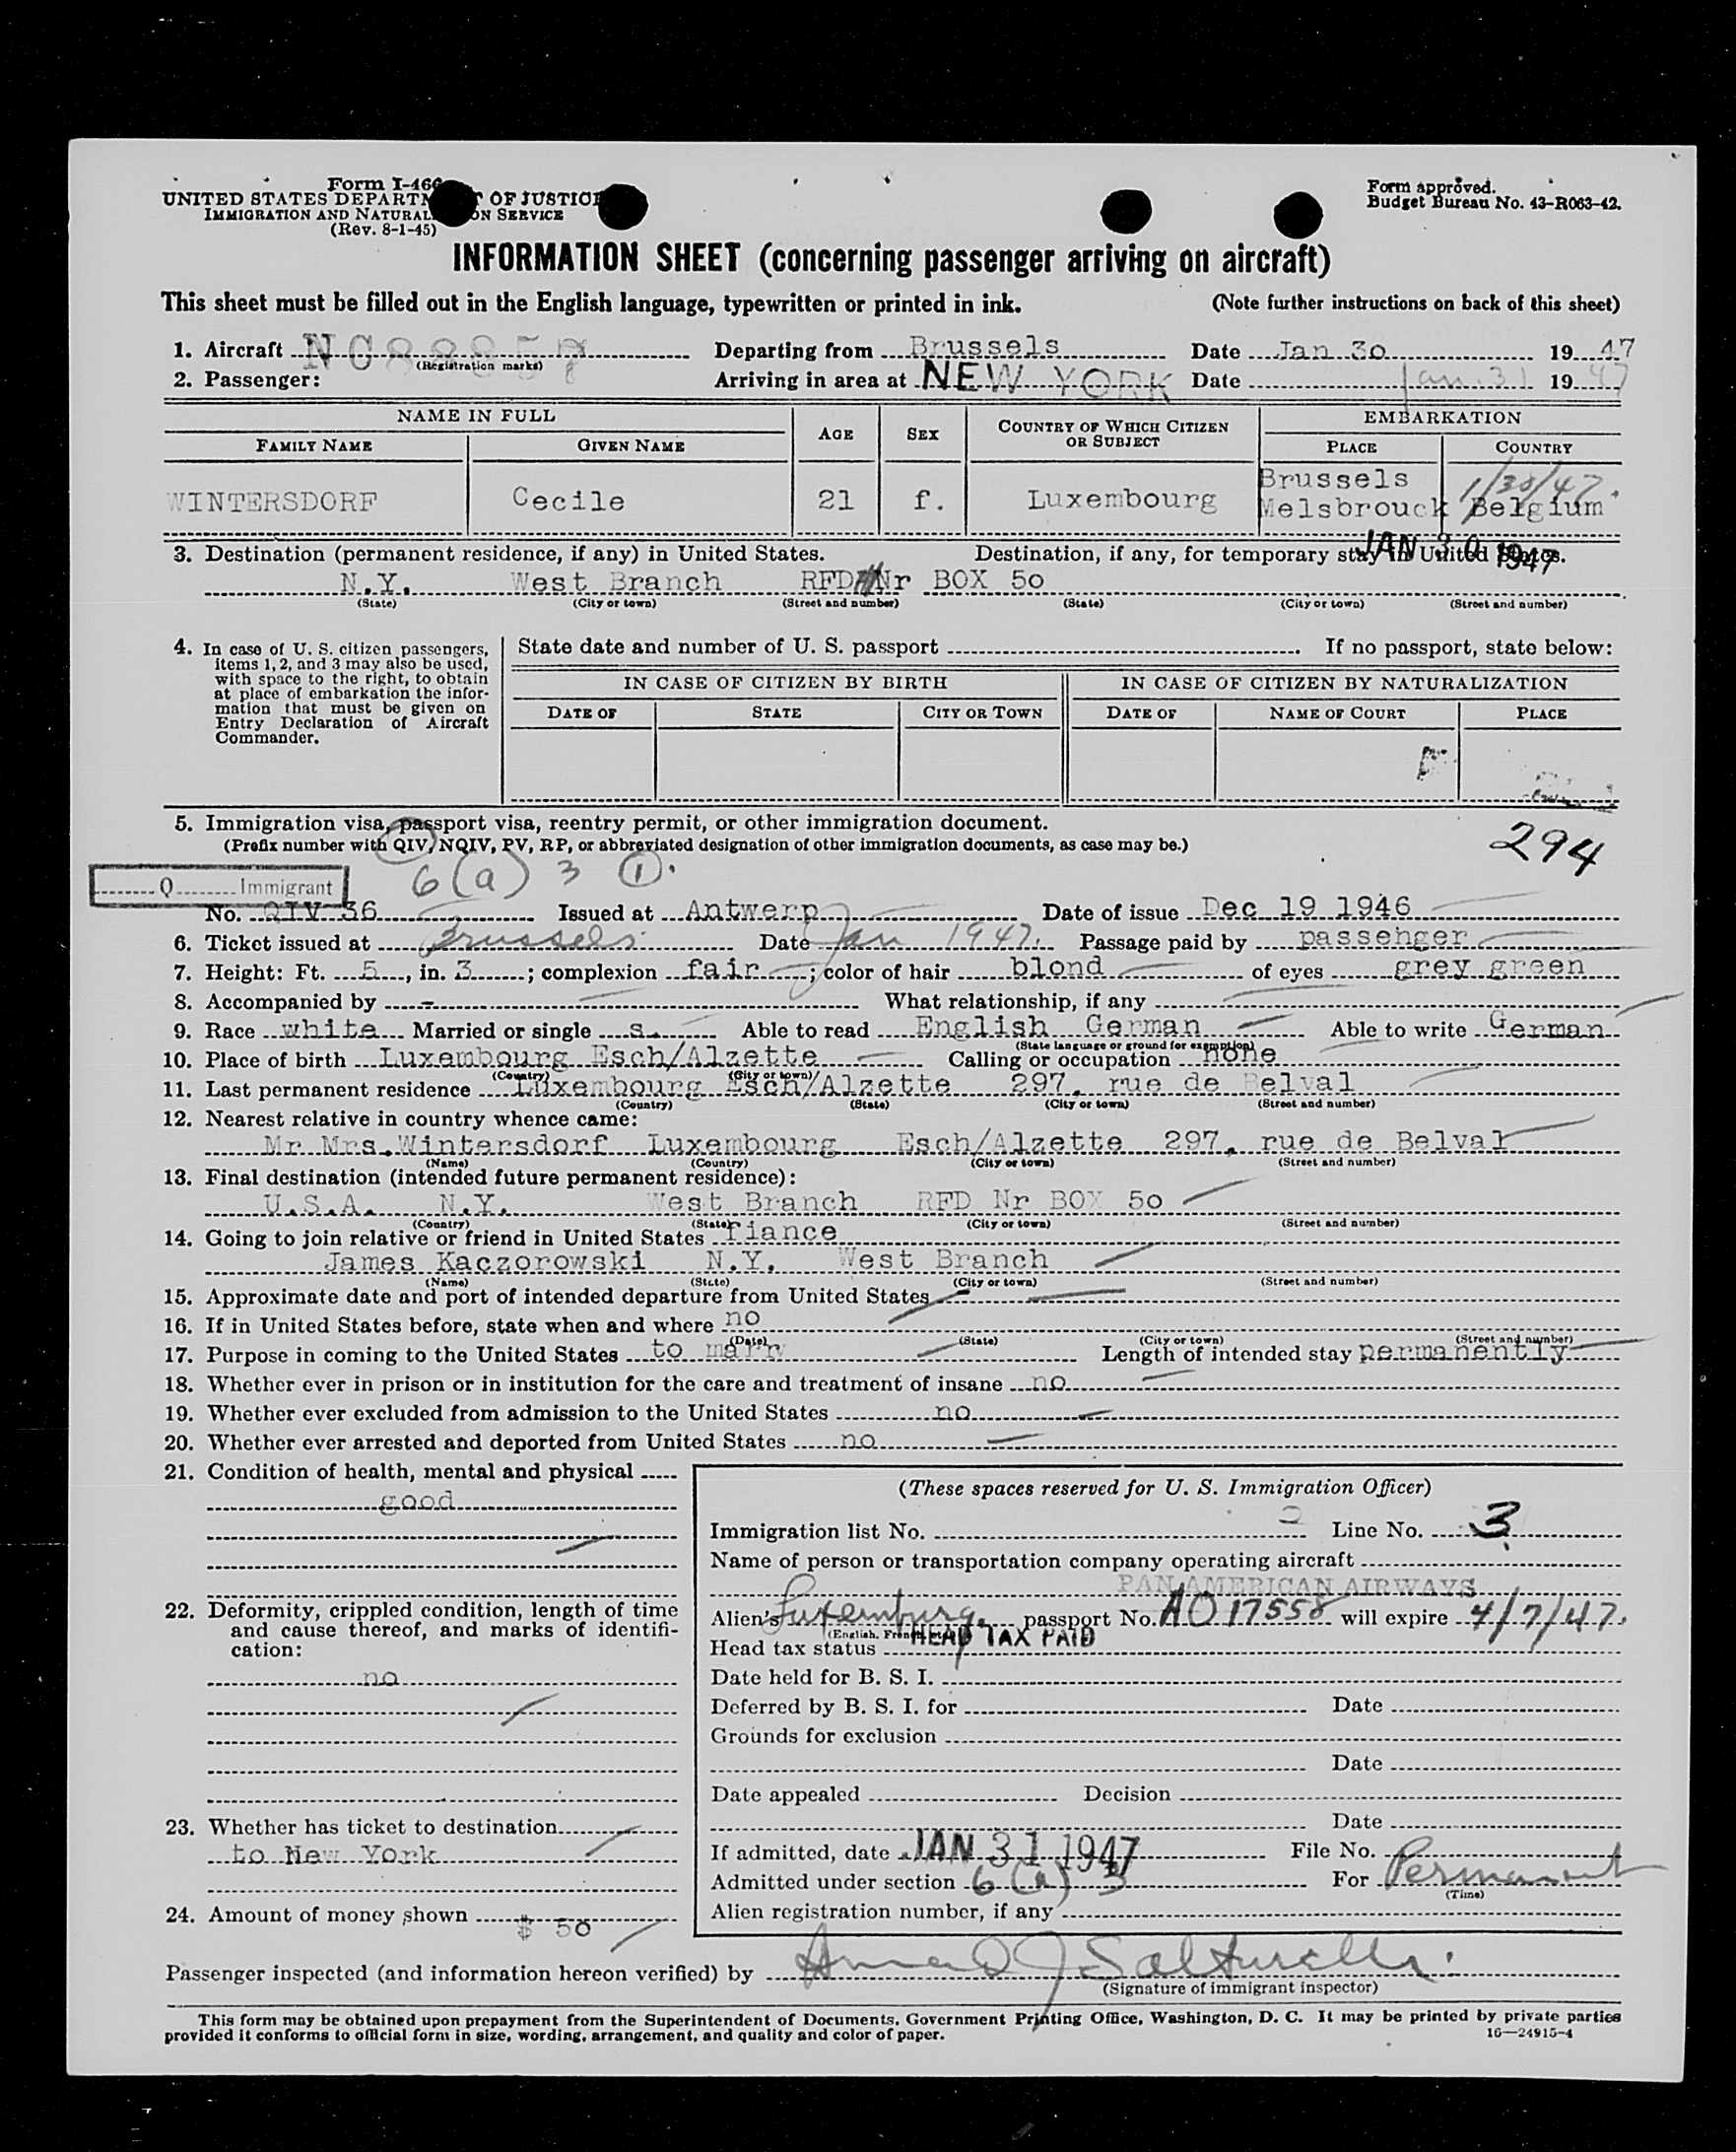 Form I-466
UNITED STATES DEPARTMENT OF JUSTICE
IMMIGRATION AND NATURALIZATION SERVICE
(Rev. 8-1-45)
Form approved.
Budget Bureau No. 43-R063-42.
INFORMATION SHEET (concerning passenger arriving on aircraft)
This sheet must be filled out in the English language, typewritten or printed in ink. (Note further instructions on back of this sheet)
1. Aircraft NC88857 Departing from Brussels Date Jan 30 1947
(Registration marks)
2. Passenger: Arriving in area at NEW YORK Date Jan. 31 1947
NAME IN FULL AGE SEX COUNTRY OF WHICH CITIZEN OR SUBJECT EMBARKATION
FAMILY NAME GIVEN NAME PLACE COUNTRY
WINTERSDORF Cecile 21 f. Luxembourg Brussels Melsbrouck Belgium 1/30/47.
3. Destination (permanent residence, if any) in United States. Destination, if any, for temporary stay in United States.
JAN 30 1947
N.Y. West Branch RFD Nr BOX 50
(State) (City or town) (Street and number) (State) (City or town) (Street and number)
4. In case of U. S. citizen passengers, items 1, 2, and 3 may also be used, with space to the right, to obtain at place of embarkation the information that must be given on Entry Declaration of Aircraft Commander.
State date and number of U. S. passport If no passport, state below:
IN CASE OF CITIZEN BY BIRTH IN CASE OF CITIZEN BY NATURALIZATION
DATE OF STATE CITY OR TOWN DATE OF NAME OF COURT PLACE
5. Immigration visa, passport visa, reentry permit, or other immigration document.
(Prefix number with QIV, NQIV, PV, RP, or abbreviated designation of other immigration documents, as case may be.)
294
Q Immigrant 6(a) 3 1.
No. QIV 36 Issued at Antwerp Date of issue Dec 19 1946
6. Ticket issued at Brussels Date Jan 1947. Passage paid by passenger
7. Height: Ft. 5, in. 3; complexion fair; color of hair blond of eyes grey green
8. Accompanied by - What relationship, if any
9. Race white Married or single s. Able to read English German Able to write German
(State language or ground for exemption)
10. Place of birth Luxembourg Esch/Alzette Calling or occupation none
(Country) (City or town)
11. Last permanent residence Luxembourg Esch/Alzette 297, rue de Belval
(Country) (State) (City or town) (Street and number)
12. Nearest relative in country whence came:
Mr Mrs. Wintersdorf Luxembourg Esch/Alzette 297, rue de Belval
(Name) (Country) (City or town) (Street and number)
13. Final destination (intended future permanent residence):
U.S.A. N.Y. West Branch RFD Nr BOX 50
(Country) (State) (City or town) (Street and number)
14. Going to join relative or friend in United States fiance
James Kaczorowski N.Y. West Branch
(Name) (State) (City or town) (Street and number)
15. Approximate date and port of intended departure from United States -
16. If in United States before, state when and where no
(Date) (State) (City or town) (Street and number)
17. Purpose in coming to the United States to marry Length of intended stay permanently
18. Whether ever in prison or in institution for the care and treatment of insane no
19. Whether ever excluded from admission to the United States no
20. Whether ever arrested and deported from United States no
21. Condition of health, mental and physical
good
22. Deformity, crippled condition, length of time and cause thereof, and marks of identification:
no
23. Whether has ticket to destination
to New York
24. Amount of money shown $ 50
(These spaces reserved for U. S. Immigration Officer)
Immigration list No. Line No. 3
Name of person or transportation company operating aircraft
PAN AMERICAN AIRWAYS
Alien's Luxemburg. passport No. AO 17558 will expire 4/7/47.
Head tax status HEAD TAX PAID
Date held for B. S. I.
Deferred by B. S. I. for Date
Grounds for exclusion
Date
Date appealed Decision
Date
If admitted, date JAN 31 1947 File No.
Admitted under section 6(a) 3 For Permanent
(Time)
Alien registration number, if any
Passenger inspected (and information hereon verified) by
(Signature of immigrant inspector)
This form may be obtained upon prepayment from the Superintendent of Documents, Government Printing Office, Washington, D. C. It may be printed by private parties
provided it conforms to official form in size, wording, arrangement, and quality and color of paper. 16—24915-4